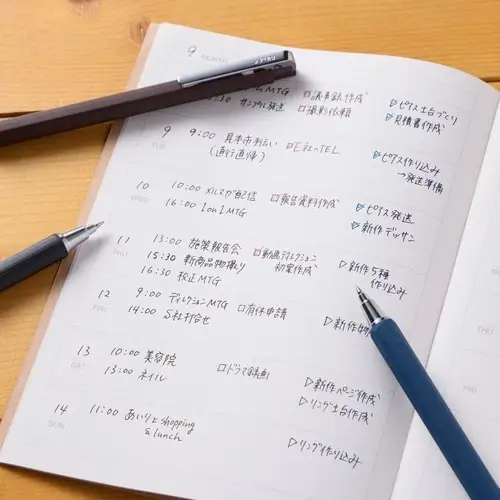 9 MON
MTG □議事録作成 ▷ピアス土台づくり
:30 サンプル発送 □撮影依頼 ▷見積書作成
9 9:00 見本市手伝い □E社へTEL ▷ピアス作り込み
TUE (直行直帰) →発送準備
10 10:00 メルマガ配信 □報告資料作成 ▷ピアス発送
WED 16:00 1on1 MTG ▷新作デッサン
11 13:00 施策報告会 □動画ディレクション ▷新作5種
THU 15:30 新商品物撮り 初案作成 作り込み
16:30 校正MTG
12 9:00 ディレクションMTG □有休申請 ▷新作物
FRI 14:00 S社打合せ
13 10:00 美容院 □ドラマ録画 ▷新作ページ作成
SAT 13:00 ネイル ▷リング土台作成
14 11:00 あいりとshopping ▷リング作り込み
SUN & lunch